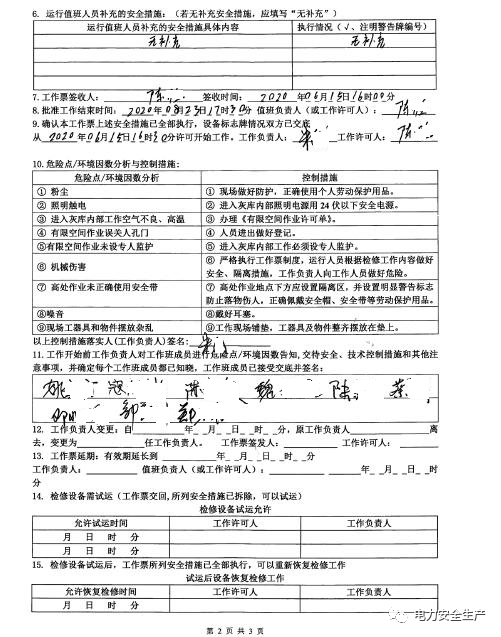 6. 运行值班人员补充的安全措施：（若无补充安全措施，应填写“无补充”）
运行值班人员补充的安全措施具体内容 执行情况（√、注明警告牌编号）
无补充 无补充
7.工作票签收人： 陈 签收时间： 2020 年06月15日16时00分
8.批准工作结束时间： 2020年08月23日17时30分 值班负责人（或工作许可人）： 陈
9.确认本工作票上述安全措施已全部执行，设备标志牌情况双方已交底
从 2020 年06月15日16时 0分许可开始工作。工作负责人： 工作许可人： 陈
10.危险点/环境因数分析与控制措施：
危险点/环境因数分析 控制措施
① 粉尘 ① 现场做好防护，正确使用个人劳动保护用品。
② 照明触电 ② 进入灰库内部照明电源用24伏以下安全电源。
③ 进入灰库内部工作空气不良、高温 ③ 办理《有限空间作业许可单》。
④ 有限空间作业误关人孔门 ④ 人员进出做好登记。
⑤有限空间作业未设专人监护 ⑤ 进入灰库内部工作必须设专人监护。
⑥ 机械伤害 ⑥ 严格执行工作票制度，运行人员根据检修工作内容做好
安全、隔离措施，工作负责人向工作人员做好危险。
⑦ 高处作业未正确使用安全带 ⑦ 高处作业地点下方应设置隔离区，并设置明显警告标志
防止落物伤人，正确佩戴安全帽、安全带等劳动保护用品。
⑧噪音 ⑧戴好耳塞。
⑨现场工器具和物件摆放杂乱 ⑨工作现场铺垫，工器具及物件整齐摆放在垫上。
以上控制措施落实人(工作负责人)签名：
11.工作开始前工作负责人对工作班成员进行危险点/环境因数告知,交待安全、技术控制措施和其他注
意事项，并确定每个工作班成员都已知晓，工作班成员已接受交底并签名：
姚 冠 陈 魏 陆 蔡
邵 郭 郑
12. 工作负责人变更：自 年 月 日 时 分，原工作负责人 离
去，变更为 任工作负责人。 工作票签发人： 工作许可人：
13. 工作票延期：有效期延长到 年 月 日 时 分
工作负责人： 值班负责人（或工作许可人）： 年 月 日 时
分
14. 检修设备需试运（工作票交回,所列安全措施已拆除，可以试运）
检修设备试运允许
允许试运时间 工作许可人 工作负责人
月 日 时 分
月 日 时 分
15. 检修设备试运后，工作票所列安全措施已全部执行，可以重新恢复检修工作
试运后设备恢复检修工作
允许恢复检修时间 工作许可人 工作负责人
月 日 时 分
第 2 页 共 3 页
电力安全生产